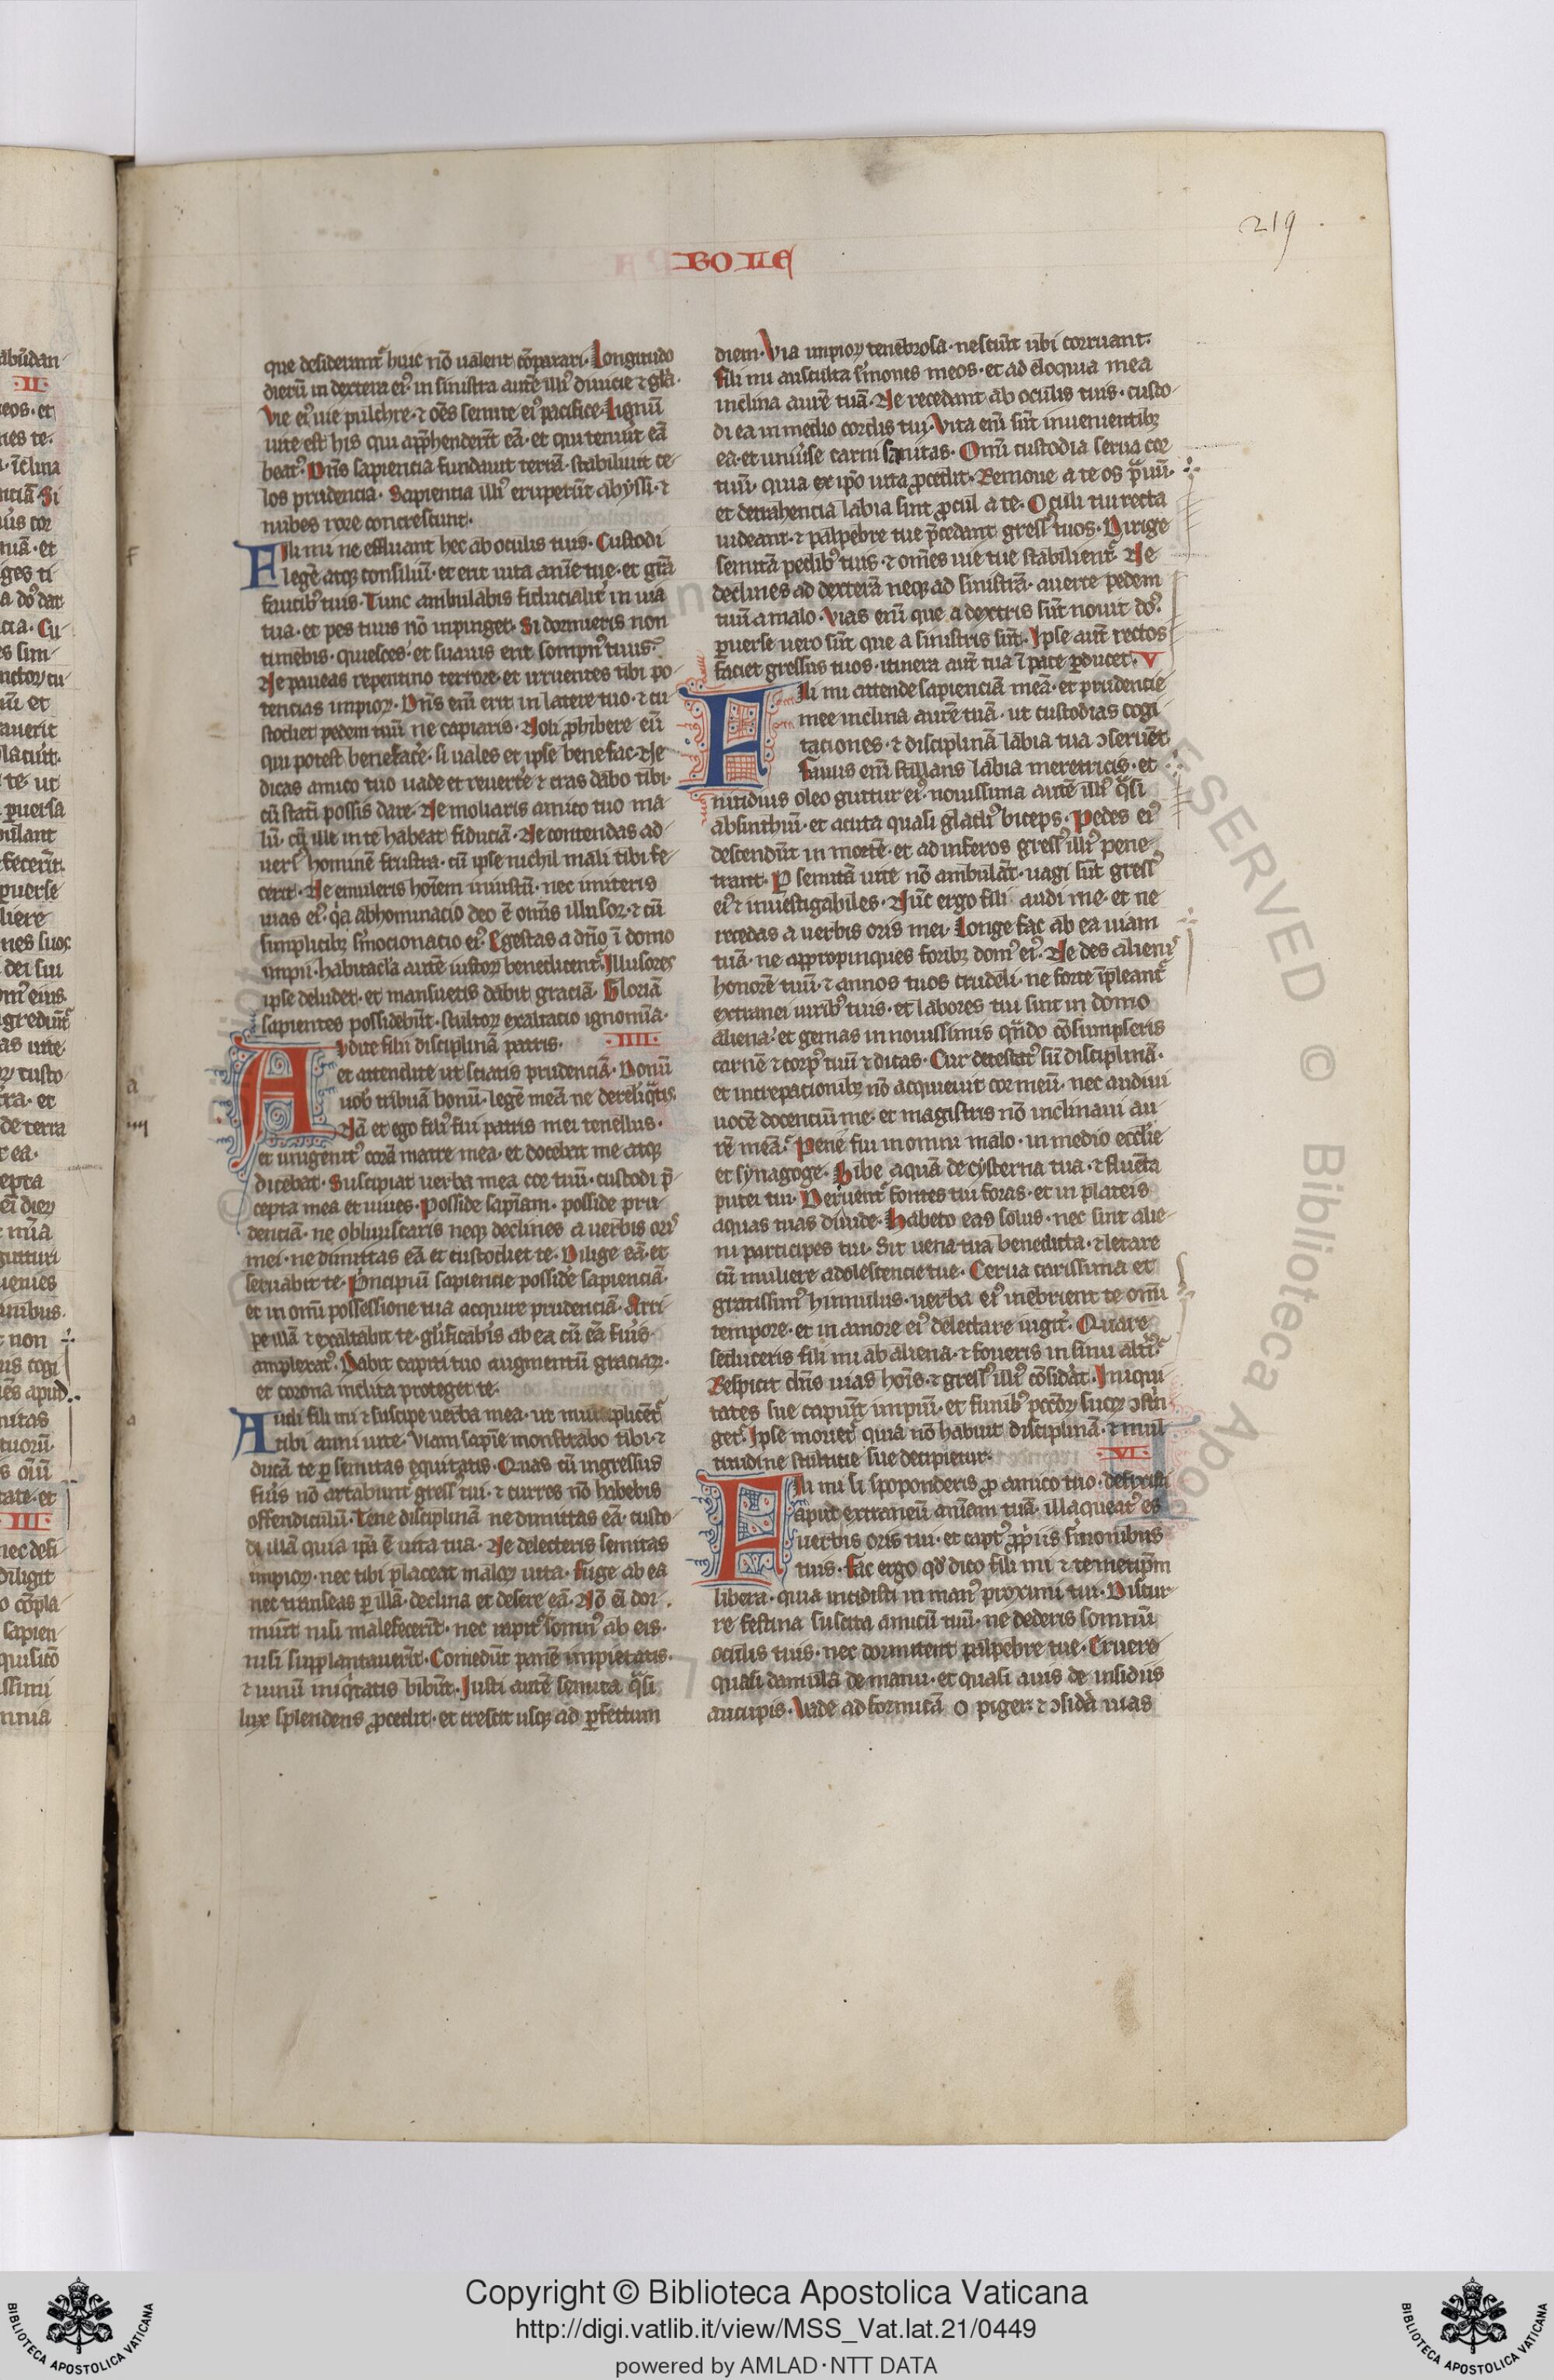 219
BOLE
que desiderant᷑ huic nō ualent cōparari· Longitudo
dierū in dextera ei᷒· in sinistra autē illi᷒ diuicie ⁊ gła·
Vie ei᷒ uie pulchre· ⁊ oēs semite ei᷒ pacifice· Lignū
uite est his qui app̄henderīt eā· et qui tenuīt eā
beat᷒· Dn̄s sapiencia fundauit terrā· stabiliuit ce
los prudencia· Sapientia illi᷒ eruperūt abyssi· ⁊
nubes rore concrescunt·
Fili mi ne effluant hec ab oculis tuis· Custodi
legē atq; consiliū· et erit uita anīe tue· et gr̄a
faucib᷒ tuis· Tunc ambulabis fiducialit̓ in uia
tua· et pes tuus nō inpinget· Si dormieris non
timebis· quiesces· et suauis erit sompn᷒ tuus·
Ne paueas repentino terrore· et irruentes tibi po
tencias impioꝝ· Dn̄s em̄ erit in latere tuo· ⁊ cu
stodiet pedem tuū ne capiaris· Noli ꝓhibere eū
qui potest benefac̓e· si uales et ipse benefac· Ne
dicas amico tuo uade et reuert̓e ⁊ cras dabo tibi·
cū stati possis dare· Ne moliaris amico tuo ma
lū· cū ille in te habeat fiduciā· Ne contendas ad
uers᷒ hominē frustra· cū ipse nichil mali tibi fe
cerit· Ne emuleris hoīem iniustū· nec imiteris
uias ei᷒· q̓a abhominacio deo ē om̄s illusor· ⁊ cū
simplicib; s̓mocionatio ei᷒· Egestas a dn̄o ī domo
impii· habitacl̄a autē iustoꝝ benedicent᷑· Illusores
ipse deludet· et mansuetis dabit graciā· Gloriā
sapientes possidebūt· stultoꝝ exaltacio ignomīa·
Audite filii disciplinā patris· ·IIII·
et attendite ut sciatis prudenciā· Donū
uob̓ tribuā bonū· legē meā ne dereliq̄tis·
Nā et ego fili᷒ fui patris mei tenellus·
et unigenit᷒ corā matre mea· et docebat me atq;
dicebat· Suscipiat uerba mea cor tuū· custodi p̄
cepta mea et uiues· Posside sapīam· posside pru
denciā· ne obliuiscaris neq; declines a uerbis or̄
mei· ne dimittas eā et custodiet te· Dilige eā· et
seruabit te· P̓ncipiū sapiencie posside sapienciā·
et in omī possessione tua acquire prudenciā· Arri
pe illā ⁊ exaltabit te· gl̓ificab̓is ab ea cū eā fu̓is
amplexat᷒· Dabit capiti tuo augmentū graciaꝝ·
et corona inclita proteget te·
Audi fili mi ⁊ suscipe uerba mea· ut multiplicēt᷑
tibi anni uite· Viam sapīe monstrabo tibi· ⁊
ducā te ꝑ semitas equitatis· Quas cū ingressus
fu̓is nō artabunt᷑ gress᷒ tui· ⁊ currēs nō habebis
offendiculū· Tene disciplinā ne dimittas eā· custo
di illā quia ip̄a ē uita tua· Ne delecteris semitas
impioꝝ· nec tibi placeat maloꝝ uita· Fuge ab ea
nec transeas ꝑ illā· declina et desere eā· Nō eī dor
miūt nisi malefecerīt· nec rapit᷑ somn᷒ ab eis·
nisi supplantauerīt· Comedūt panē impietatis·
⁊ uinū iniq̄tatis bibūt· Justi autē semita q̄si
lux splendens ꝓcedit· et crescit usq; ad ꝑfectum
diem· Via impioꝝ tenebrosa· nesciūt ubi corruant·
Fili mi ausculta s̓mones meos· et ad eloquia mea
inclina aurē tuā· Ne recedant ab oculis tuis· custo
di ea in medio cordis tui· Vita em̄ sūt inuenientib;
ea· et uniu̓se carni sanitas· Omī custodia serua cor
tuū· quia ex ip̄o uita ꝓcedit· Remoue a te os p̄uū·
et detrahencia labia sint ꝓcul a te· Oculi tui recta
uideant· ⁊ palpebre tue p̄cedant gress᷒ tuos· Dirige
semitā pedib᷒ tuis· ⁊ om̄es uie tue stabilient᷑· Ne
declines ad dexterā neq; ad sinistrā· auerte pedem
tuū a malo· Vias em̄ que a dextris sūt nouit do᷒·
ꝑuerse uero sūt que a sinistris sūt· Ipse aūt rectos
faciet gressus tuos· itinera aūt tua ī pace ꝓducet· V
Fili mi attende sapienciā meā· et prudencie
mee inclina aurē tuā· ut custodias cogi
taciones· ⁊ disciplinā labia tua ↄseruēt·
Fauus em̄ stillans labia meretricis· et
nitidius oleo guttur ei᷒· nouissima autē illi᷒ q̄si
absinthiū· et acuta quasi gladi᷒ biceps· Pedes ei᷒
descendūt in mortē· et ad inferos gress᷒ illi᷒ pene
trant· ꝑ semitā uite nō ambulāt· uagi sūt gress᷒
ei᷒ ⁊ inuestigabiles· Nūc ergo fili audi me· et ne
recedas a uerbis oris mei· Longe fac ab ea uiam
tuā· ne appropinques forib; dom᷒ ei᷒· Ne des alienis
honorē tuū· ⁊ annos tuos crudeli· ne forte īpleant᷑
extranei uirib᷒ tuis· et labores tui sint in domo
aliena· et gemas in nouissimis qn̄do cōsumpseris
carnē ⁊ corp᷒ tuū ⁊ dicas· Cur detestat᷒ sū disciplinā·
et increpacionib; nō acquieuit cor meū· nec audiui
uocē docenciū me· et magistris nō inclinaui au
rē meā· Pene fui in omni malo· in medio eccl̄ie
et synagoge· Bibe aquā de cysterna tua· ⁊ fluēta
putei tui· Deriuent᷑ fontes tui foras· et in plateis
aquas tuas diuide· Habeto eas solus· nec sint alie
ni participes tui· Sit uena tua benedicta· ⁊ letare
cū muliere adolescencie tue· Cerua carissima et
gratissim᷒ hinnulus· uerba ei᷒ inebrient te omī
tempore· et in amore ei᷒ delectare iugit̓· Quare
seduceris fili mi ab aliena· ⁊ foueris in sinu alt̓i᷒
Respicit dn̄s uias hoīs· ⁊ gress᷒ illi᷒ cōsid̓at· Iniqui
tates sue capiūt impiū· et funib᷒ pccōꝝ suoꝝ ↄstrī
get᷑· Ipse moriet᷑ quia nō habuit disciplinā· ⁊ mul
titudine stulticie sue decipietur· ·VI·
Fili mi si spoponderis ꝓ amico tuo· defixisti
apud extraneū anīam tuā· illaqueat᷒ es
uerbis oris tui· et capt᷒ ꝓp̓iis s̓monibus
tuis· Fac ergo qd̄ dico fili mi ⁊ temetip̄m
libera· quia incidisti in man᷒ proximi tui· Discur
re festina suscita amicū tuū· ne dederis somnū
oculis tuis· nec dormitent palpebre tue· Eruere
quasi damula de manu· et quasi auis de insidiis
aucupis· Vade ad formicā o piger· ⁊ ↄsid̓a uias
Copyright © Biblioteca Apostolica Vaticana
http://digi.vatlib.it/view/MSS_Vat.lat.21/0449
powered by AMLAD·NTT DATA
BIBLIOTECA APOSTOLICA VATICANA
BIBLIOTECA APOSTOLICA VATICANA